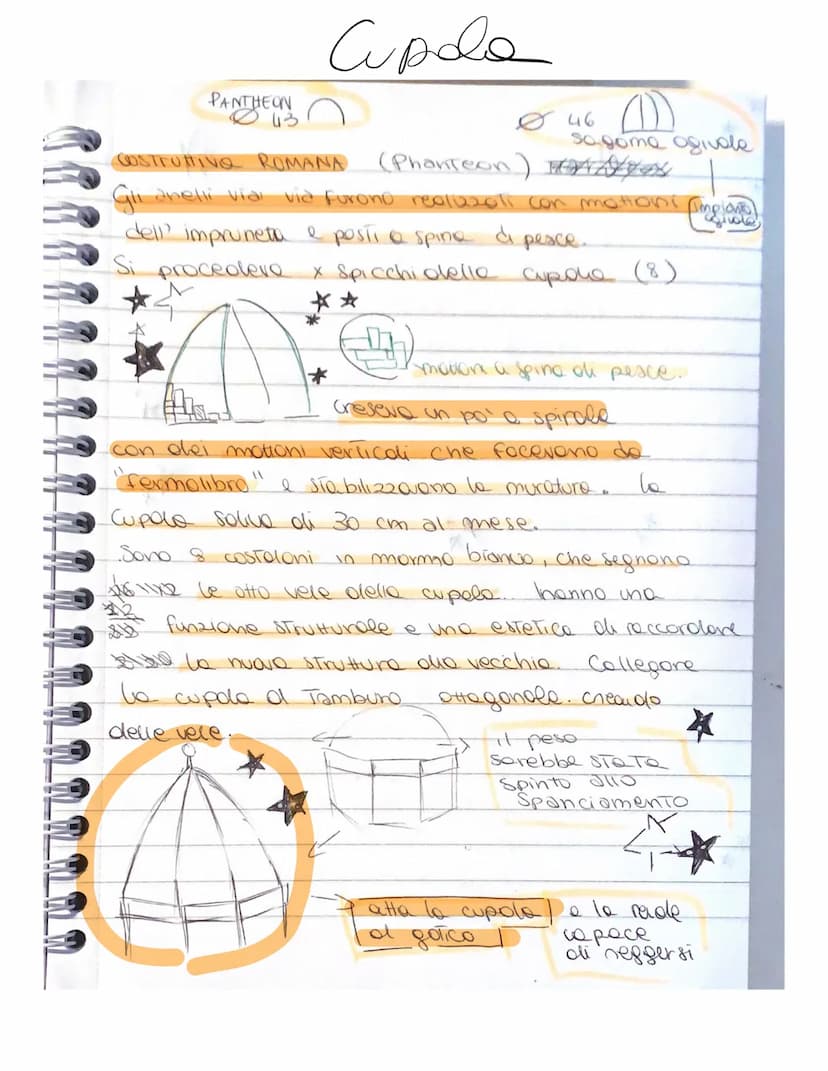 Cupola
PANTHEON
Ø 43
Ø 46
sagoma ogivale
COSTRUTTIVA ROMANA (Phanteon)
impianto
ogivale
Gli anelli via via furono realizzati con mattoni
dell' impruneta e posti a spina di pesce.
Si procedeva x spicchi della cupola (8)
mattoni a spina di pesce.
cresceva un po' a spirale
con dei mattoni verticali che facevano da
"fermalibro" e stabilizzavano la muratura. la
cupola saliva di 30 cm al mese.
Sono 8 costoloni in marmo bianco, che segnano
le otto vele della cupola.. hanno una
funzione strutturale e una estetica di raccordare
la nuova struttura alla vecchia. Collegare
la cupola al Tamburo ottagonale. creando
delle vele.
il peso
sarebbe stata
spinto allo
spanciamento
atta la cupola
al gotico
e la rende
capace
di reggersi